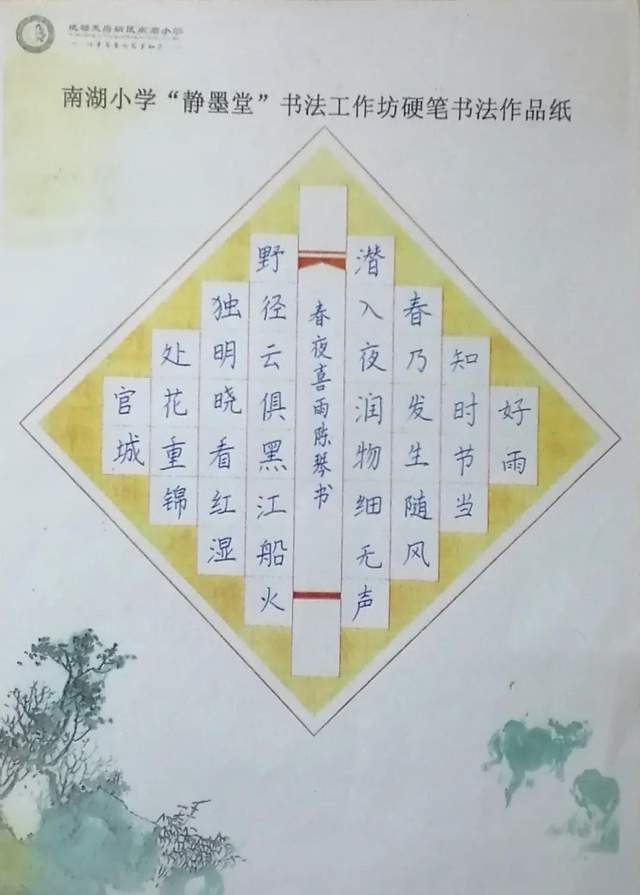 南湖小学“静墨堂”书法工作坊硬笔书法作品纸
好雨
知时节当
春乃发生随风
潜入夜润物细无声
春夜喜雨陈琴书
野径云俱黑江船火
独明晓看红湿
处花重锦
官城